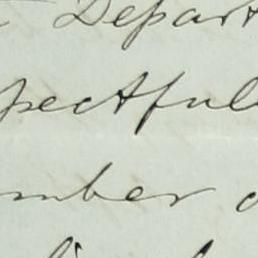 Depart
pectful
mber